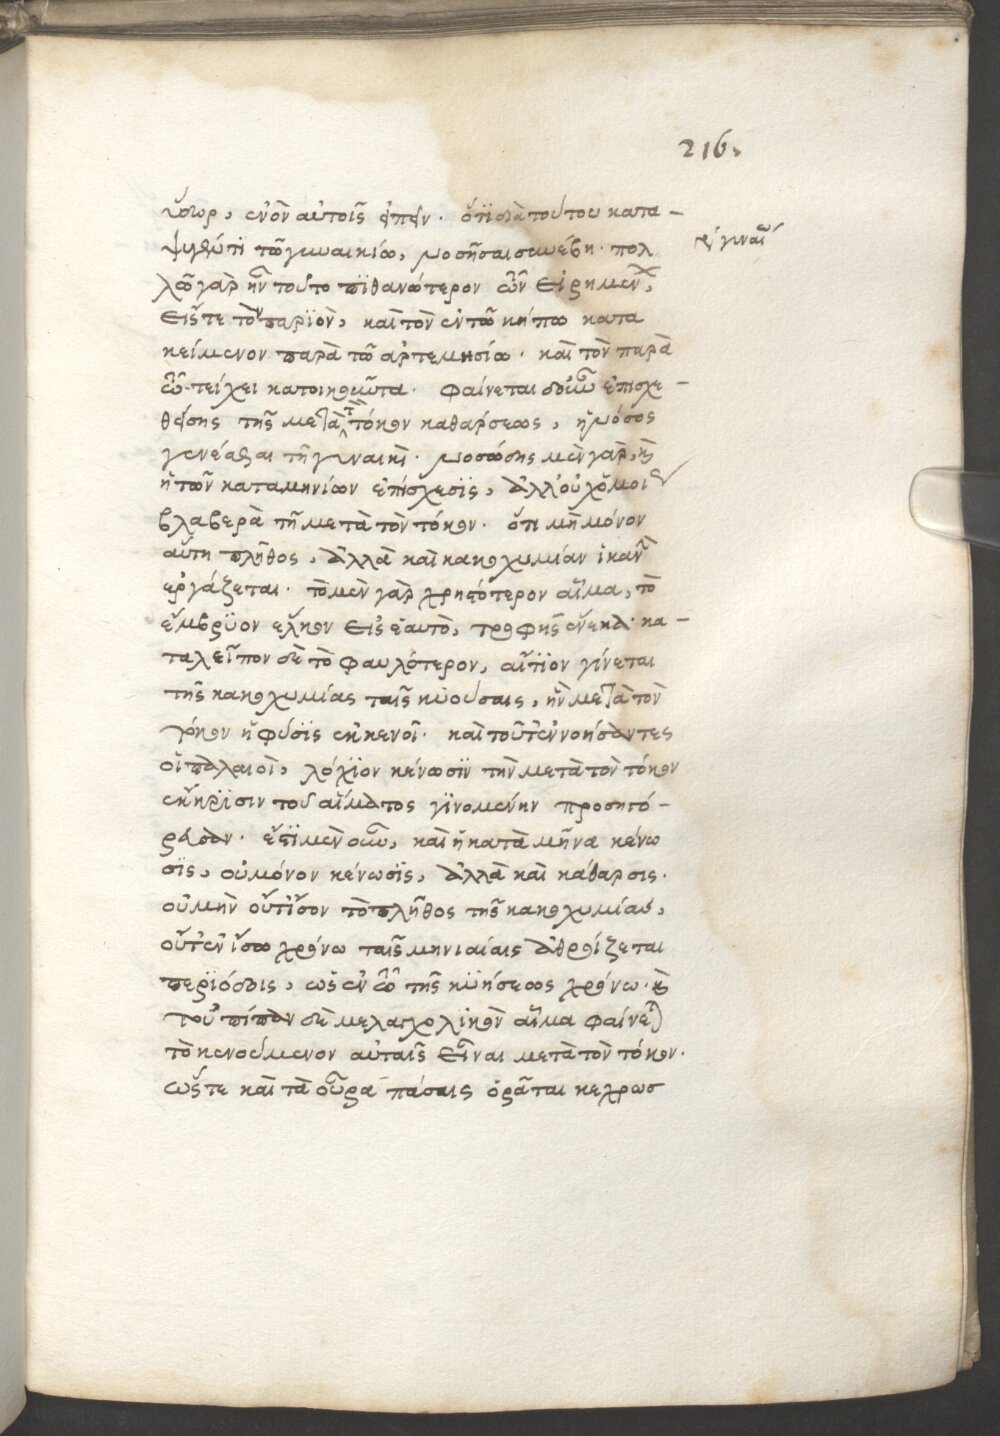 216.
ὕδωρ, ἐνὸν αὐτοῖς εἰπεῖν. ὅτι διὰ τούτου κατα-
ψυχθέντι τῶ γυναικίω, νοσῆσαι συνέβη. πολ
λῶ γὰρ ἦν τοῦτο πιθανώτερον ὧν εἰρήκεν,
εἴς τε τὸν πάριον, καὶ τὸν ἐν τῶ κήπω κατα
κείμενον παρὰ τῶ ἀρτεμισίω. καὶ τὸν παρὰ
τῶ τείχει κατοικοῦντα. φαίνεται δ' οὖν ἐπισχε-
θείσης τῆς μετὰ τὸν τόκον καθάρσεως, ἡ νόσος
γενέσθαι τῆ γυναικὶ. νοσώδης μὲν γὰρ, καὶ
ἡ τῶν καταμηνίων ἐπίσχεσις, ἀλλ' οὐχ ὁμοίως
βλαβερὰ τῆ μετὰ τὸν τόκον. ὅτι μὴ μόνον
αὕτη πλῆθος, ἀλλὰ καὶ κακοχυμίαν ἱκανὴν
ἐργάζεται. τὸ μὲν γὰρ χρηστότερον αἷμα, τὸ
ἔμβρυον ἕλκον εἰς ἑαυτὸ, τροφῆς ἕνεκα. κα-
ταλεῖπον δὲ τὸ φαυλότερον, αἴτιον γίνεται
τῆς κακοχυμίας ταῖς κυούσαις, ἣν μετὰ τὸν
τόκον ἡ φύσις ἐκκενοῖ. καὶ τοῦτ' ἐννοήσαντες
οἱ παλαιοὶ, λόχιον κένωσιν τὴν μετὰ τὸν τόκον
ἔκκρισιν τοῦ αἵματος γινομένην προσηγό-
ρευσαν. ἔστι μὲν οὖν, καὶ ἡ κατὰ μῆνα κένω
σις, οὐ μόνον κένωσις, ἀλλὰ καὶ κάθαρσις.
οὐ μὴν οὔτ' ἴσον τὸ πλῆθος τῆς κακοχυμίας,
οὔτ' ἐν ἴσω χρόνω ταῖς μηνιαίαις ἀθροίζεται
περιόδοις, ὡς ἐν τῶ τῆς κυήσεως χρόνω. καὶ
τοὐπίπαν δὲ μελαγχολικὸν αἷμα φαίνεται
τὸ κενούμενον αὐταῖς εἶναι μετὰ τὸν τόκον.
ὥστε καὶ τὰ οὖρα πάσαις ὁρᾶται κεχρωσ